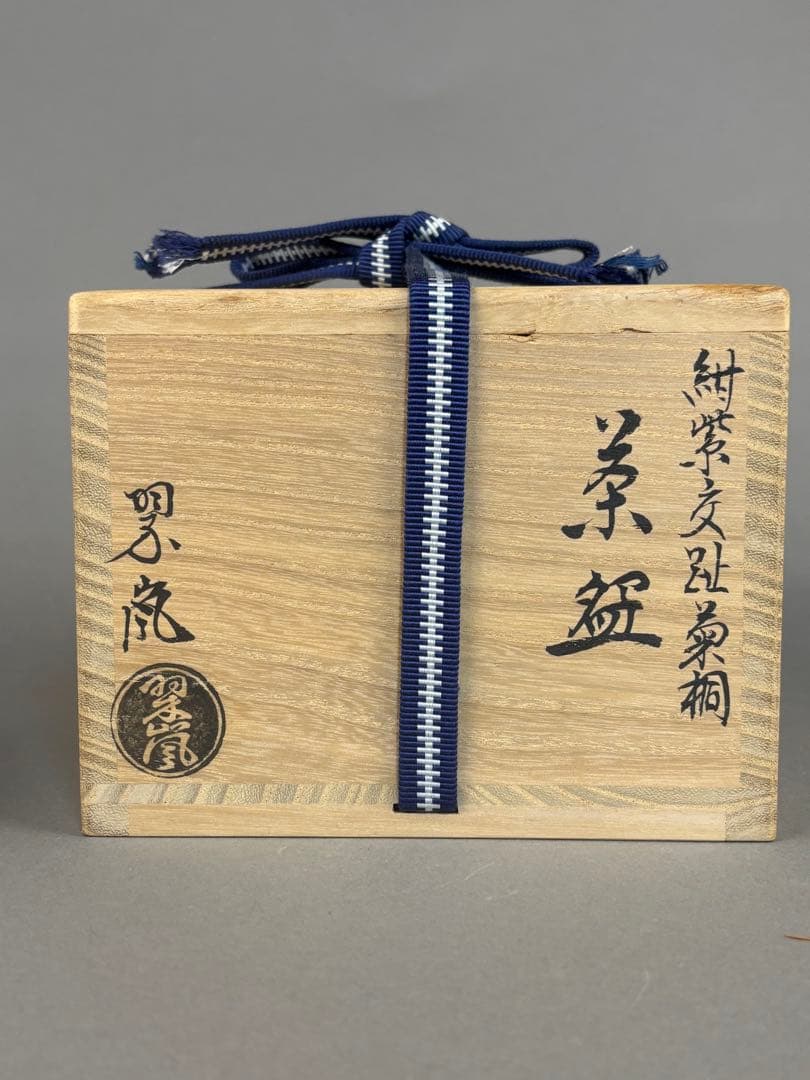 紺紫交趾菊桐
茶盌
翠嵐
翠嵐